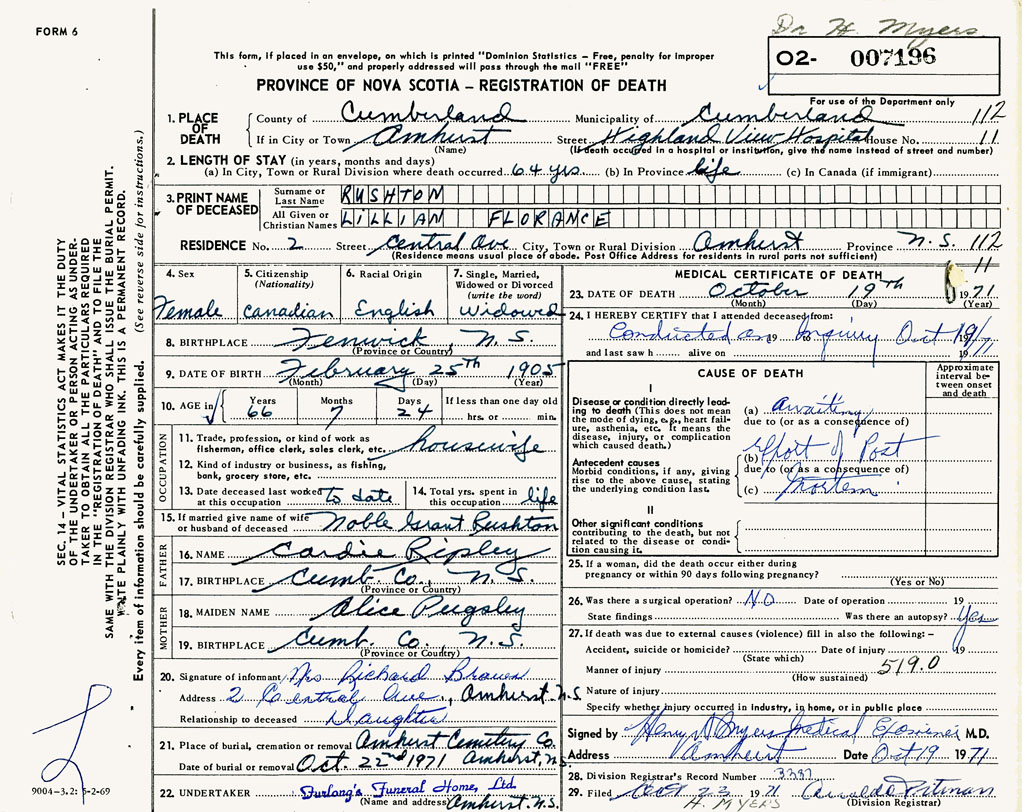 FORM 6
Dr H. Myers
This form, if placed in an envelope, on which is printed "Dominion Statistics – Free, penalty for improper
use $50," and properly addressed will pass through the mail "FREE"
02- 007196
PROVINCE OF NOVA SCOTIA – REGISTRATION OF DEATH
For use of the Department only
1. PLACE OF DEATH
County of Cumberland Municipality of Cumberland 112
If in City or Town Amhurst Street Highland View Hospital House No. 11
(Name) (If death occurred in a hospital or institution, give the name instead of street and number)
2. LENGTH OF STAY (in years, months and days)
(a) In City, Town or Rural Division where death occurred 64 yrs. (b) In Province life (c) In Canada (if immigrant)
3. PRINT NAME OF DECEASED
Surname or Last Name RUSHTON
All Given or Christian Names LILLIAN FLORANCE
RESIDENCE No. 2 Street Central Ave City, Town or Rural Division Amhurst Province N.S. 112
(Residence means usual place of abode. Post Office Address for residents in rural parts not sufficient)
11
4. Sex
Female
5. Citizenship (Nationality)
Canadian
6. Racial Origin
English
7. Single, Married, Widowed or Divorced (write the word)
Widowed
8. BIRTHPLACE Fenwick, N.S.
(Province or Country)
9. DATE OF BIRTH February 25th 1905
(Month) (Day) (Year)
10. AGE in Years 66 Months 7 Days 24 If less than one day old
hrs. or min.
OCCUPATION
11. Trade, profession, or kind of work as fisherman, office clerk, sales clerk, etc. housewife
12. Kind of industry or business, as fishing, bank, grocery store, etc.
13. Date deceased last worked at this occupation to date
14. Total yrs. spent in this occupation life
15. If married give name of wife or husband of deceased Noble Grant Rushton
FATHER
16. NAME Cardie Ripley
17. BIRTHPLACE Cumb. Co., N.S.
(Province or Country)
MOTHER
18. MAIDEN NAME Alice Pugsley
19. BIRTHPLACE Cumb. Co. N.S.
(Province or Country)
20. Signature of informant Mrs Richard Brown
Address 2 Central Ave, Amhurst. N.S.
Relationship to deceased Daughter
21. Place of burial, cremation or removal Amhurst Cemetery Co.
Amhurst, N.S.
Date of burial or removal Oct. 22nd 1971
22. UNDERTAKER Furlong's Funeral Home, Ltd.
(Name and address) Amhurst. N.S.
MEDICAL CERTIFICATE OF DEATH
23. DATE OF DEATH October 19th 1971
(Month) (Day) (Year)
24. I HEREBY CERTIFY that I attended deceased from:
Conducted an 19 to Inquiry Oct 19/71
and last saw h alive on 19
CAUSE OF DEATH
Approximate interval between onset and death
I
Disease or condition directly leading to death (This does not mean the mode of dying, e.g., heart failure, asthenia, etc. It means the disease, injury, or complication which caused death.)
(a) Awaiting
due to (or as a consequence of)
Antecedent causes
Morbid conditions, if any, giving rise to the above cause, stating the underlying condition last.
(b) Report of Post
due to (or as a consequence of)
(c) Mortem
II
Other significant conditions contributing to the death, but not related to the disease or condition causing it.
25. If a woman, did the death occur either during pregnancy or within 90 days following pregnancy?
(Yes or No)
26. Was there a surgical operation? NO Date of operation 19
State findings Was there an autopsy? Yes
27. If death was due to external causes (violence) fill in also the following: –
Accident, suicide or homicide? Date of injury 19
(State which)
Manner of injury 519.0
(How sustained)
Nature of injury
Specify whether injury occurred in industry, in home, or in public place
Signed by Henry D Myers Medical Examiner M.D.
Address Amherst Date Oct 19 1971
28. Division Registrar's Record Number 3387
29. Filed Oct 23 1971
Division Registrar
H. MYERS
SEC. 14 – VITAL STATISTICS ACT MAKES IT THE DUTY
OF THE UNDERTAKER OR PERSON ACTING AS UNDERTAKER
TO OBTAIN ALL THE PARTICULARS REQUIRED
IN THE "REGISTRATION OF DEATH" AND TO FILE THE
SAME WITH THE DIVISION REGISTRAR WHO SHALL ISSUE THE BURIAL PERMIT.
WRITE PLAINLY WITH UNFADING INK. THIS IS A PERMANENT RECORD.
Every item of information should be carefully supplied. (See reverse side for instructions.)
9004-3.2: 5-2-69